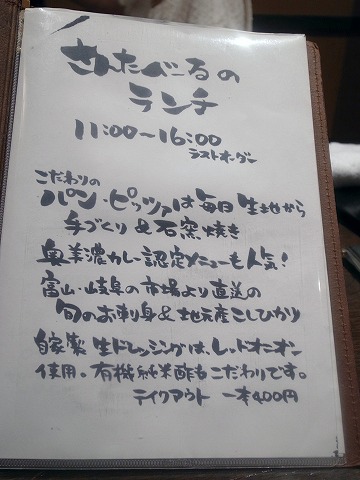 さんたべーるの
ランチ
11:00~16:00
ラストオーダー
こだわりの
パン・ピッツァは毎日生地から
手づくり&石窯焼き
奥美濃カレー認定メニューも人気!
富山・岐阜の市場より直送の
旬のお刺身&地元産こしひかり
自家製生ドレッシングは、レッドオニオン
使用。有機純米酢もこだわりです。
テイクアウト 一本400円